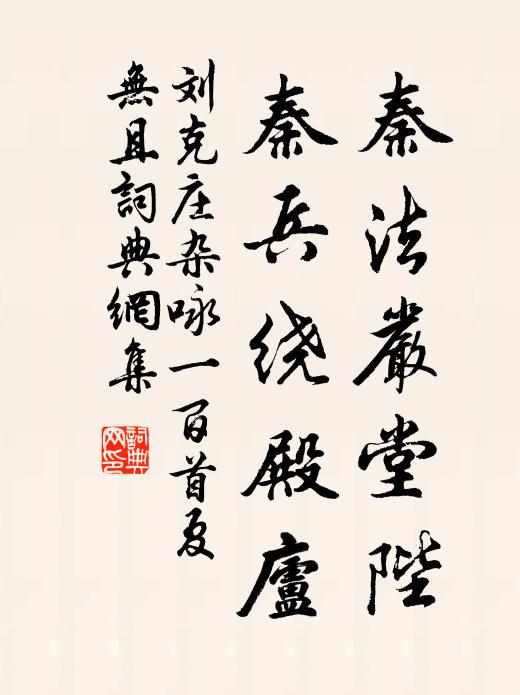 秦法嚴堂陛
秦兵绕殿廬
刘克庄杂咏一百首夏
無且詞典網集
詞典
网印